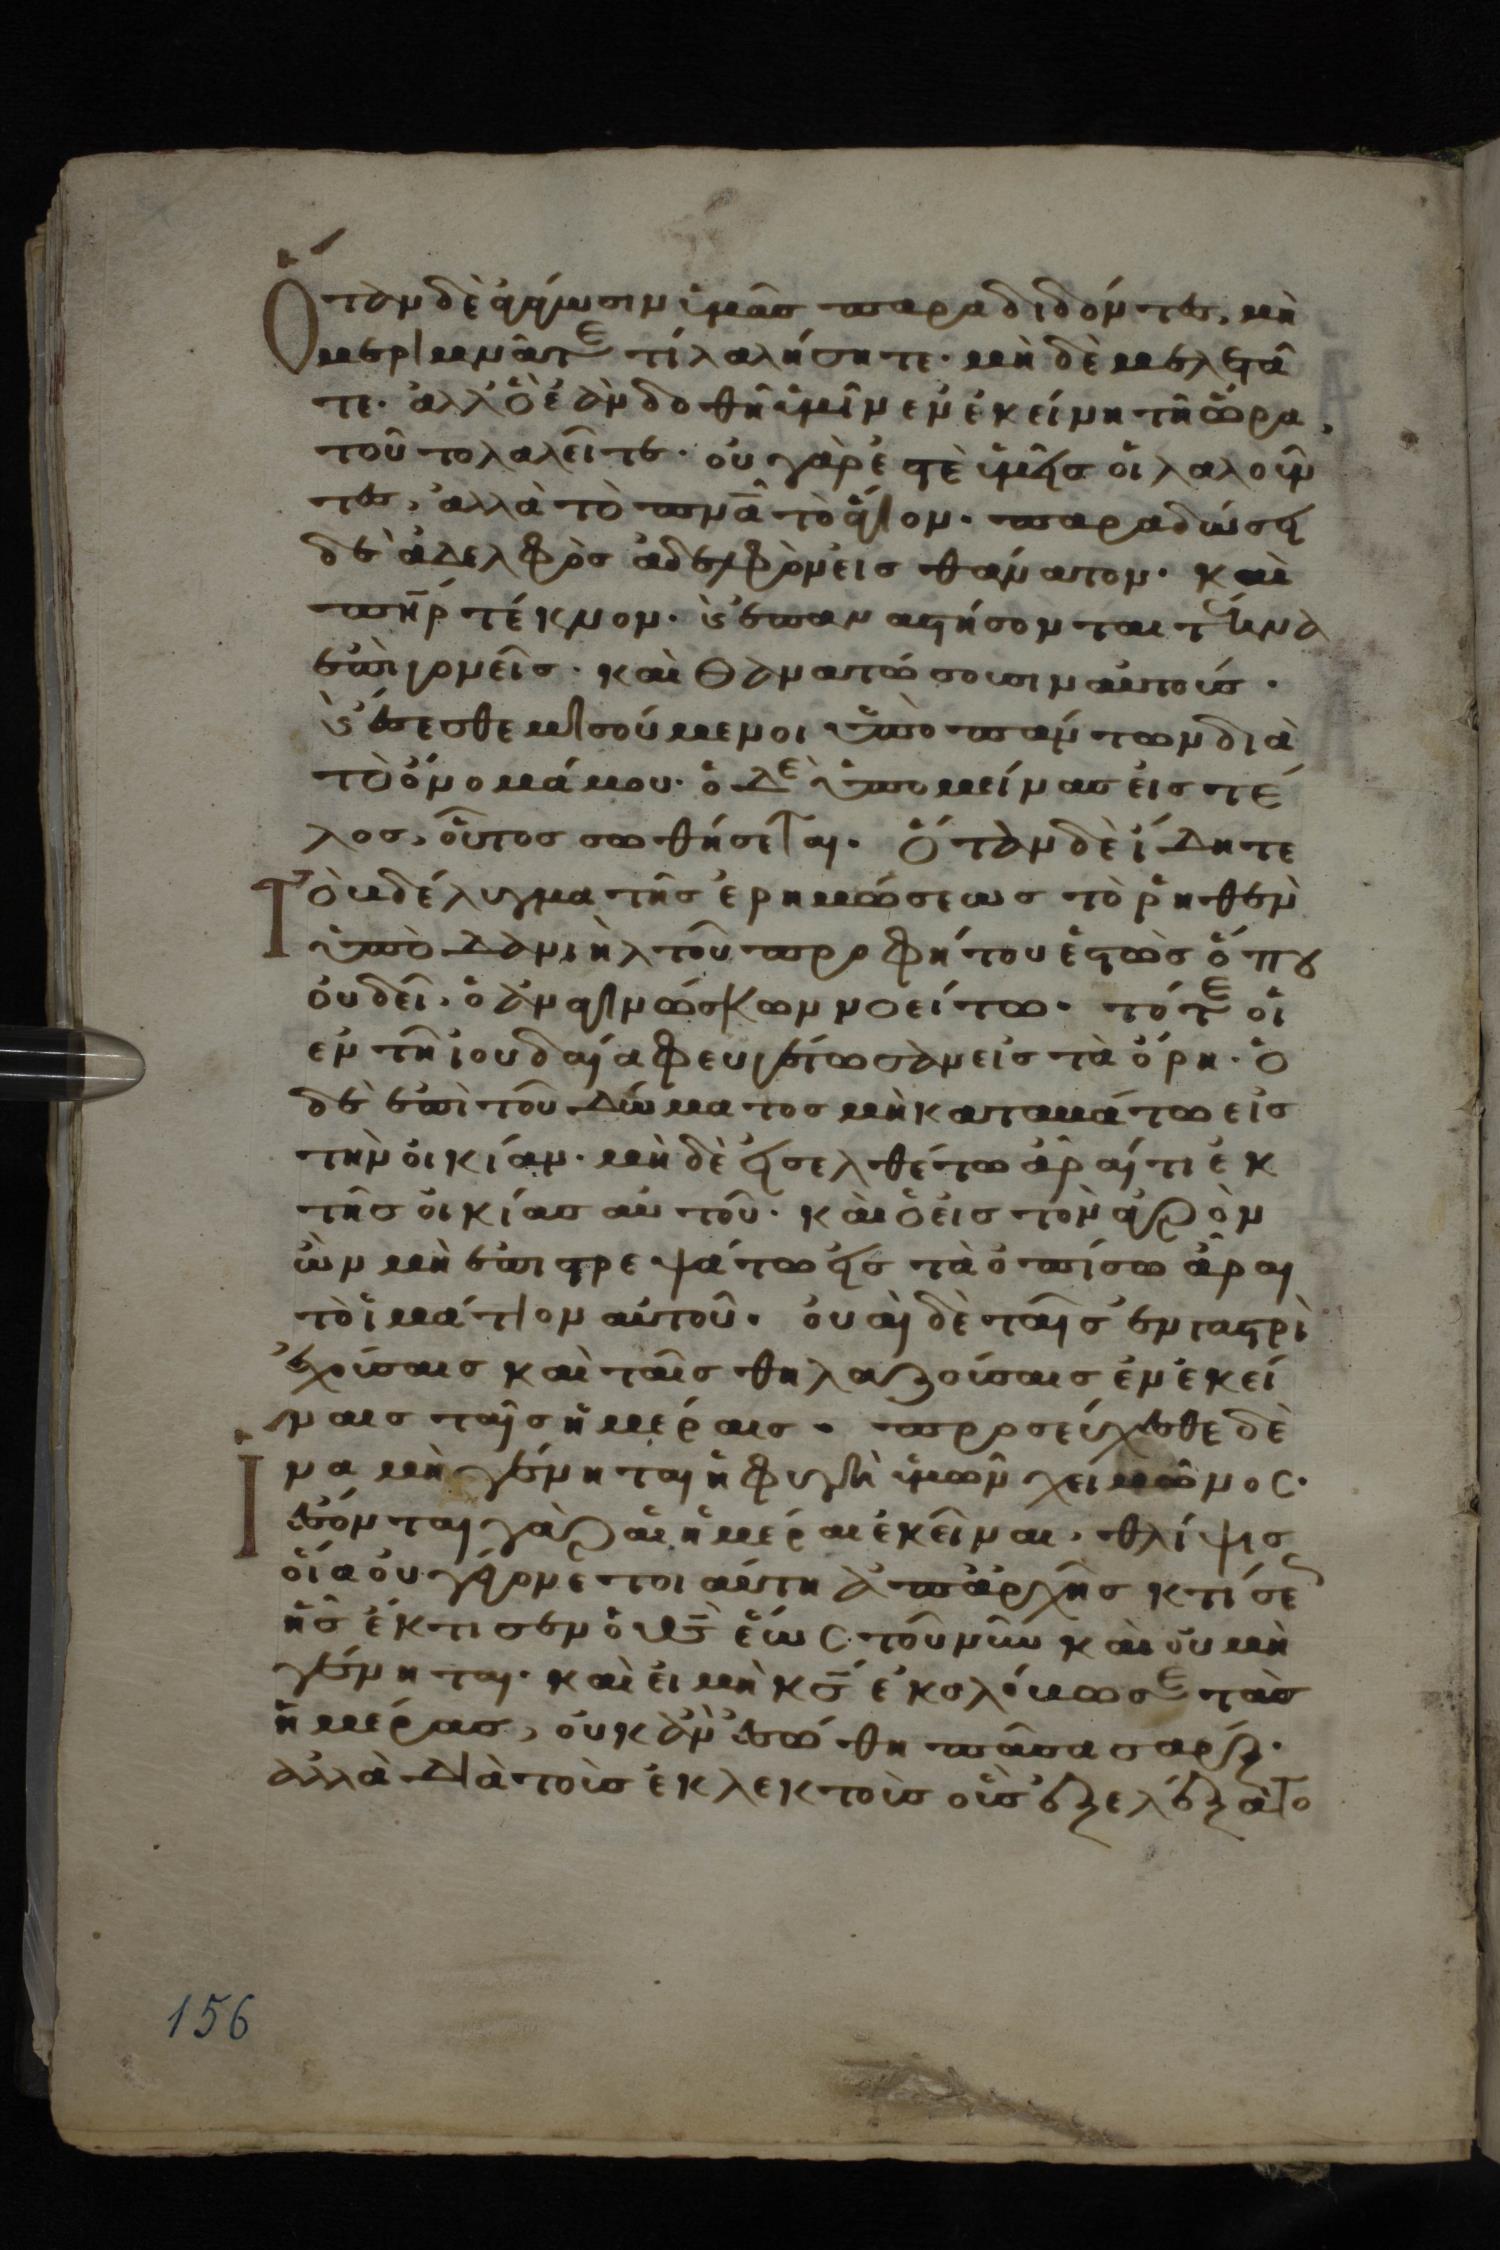 Ὅταν δὲ ἀγάγωσιν ὑμᾶς παραδιδόντες, μὴ
μεριμνᾶτε τί λαλήσητε· μὴ δὲ μελετᾶ
τε· ἀλλ' ὃ ἐὰν δοθῆ ὑμῖν ἐν ἐκείνη τῆ ὥρα,
τοῦτο λαλεῖτε· οὐ γάρ ἐστὲ ὑμεῖς οἱ λαλοῦν
τες, ἀλλὰ τὸ πνᾶ τὸ ἅγιον· παραδώσει
δὲ ἀδελφὸς ἀδελφὸν εἰς θάνατον· καὶ
πηρ τέκνον· κ ἐπαναστήσονται τέκνα
ἐπὶ γονεῖς· καὶ θανατώσουσιν αὐτούς·
κ ἔσεσθε μισούμενοι ὑπὸ πάντων διὰ
τὸ ὄνομά μου· ὁ δὲ ὑπομείνας εἰς τέ
λος, οὗτος σωθήσεται· Ὅταν δὲ ἴδητε
Τὸ βδέλυγμα τῆς ἐρημώσεως τὸ ῥηθὲν
ὑπὸ Δανιὴλ τοῦ προφήτου ἑστὼς ὅπου
οὐ δεῖ, ὁ ἀναγινώσκων νοείτω· τότε οἱ
ἐν τῆ ἰουδαία φευγέτωσαν εἰς τὰ ὄρη· ὁ
δὲ ἐπὶ τοῦ δώματος μὴ καταβάτω εἰς
τὴν οἰκίαν· μὴ δὲ εἰσελθέτω ἆραί τι ἐκ
τῆς οἰκίας αὐτοῦ· καὶ ὁ εἰς τὸν ἀγρὸν
ὢν μὴ ἐπιστρεψάτω εἰς τὰ ὀπίσω ἆραι
τὸ ἱμάτιον αὐτοῦ· οὐαὶ δὲ ταῖς ἐν γαστρὶ
ἐχούσαις καὶ ταῖς θηλαζούσαις ἐν ἐκεί
ναις ταῖς ἡμέραις· προσεύχεσθε δὲ
Ἵνα μὴ γένηται ἡ φυγὴ ὑμῶν χειμῶνος·
ἔσονται γὰρ αἱ ἡμέραι ἐκεῖναι, θλίψις
οἵα οὐ γέγονε τοιαύτη ἀπ' ἀρχῆς κτίσε
ἧς ἔκτισεν ὁ θς ἕως τοῦ νῦν καὶ οὐ μὴ
γένηται· καὶ εἰ μὴ κς ἐκολόβωσε τὰς
ἡμέρας, οὐκ ἂν ἐσώθη πᾶσα σάρξ·
ἀλλὰ διὰ τοὺς ἐκλεκτοὺς οὓς ἐξελέξατο
156